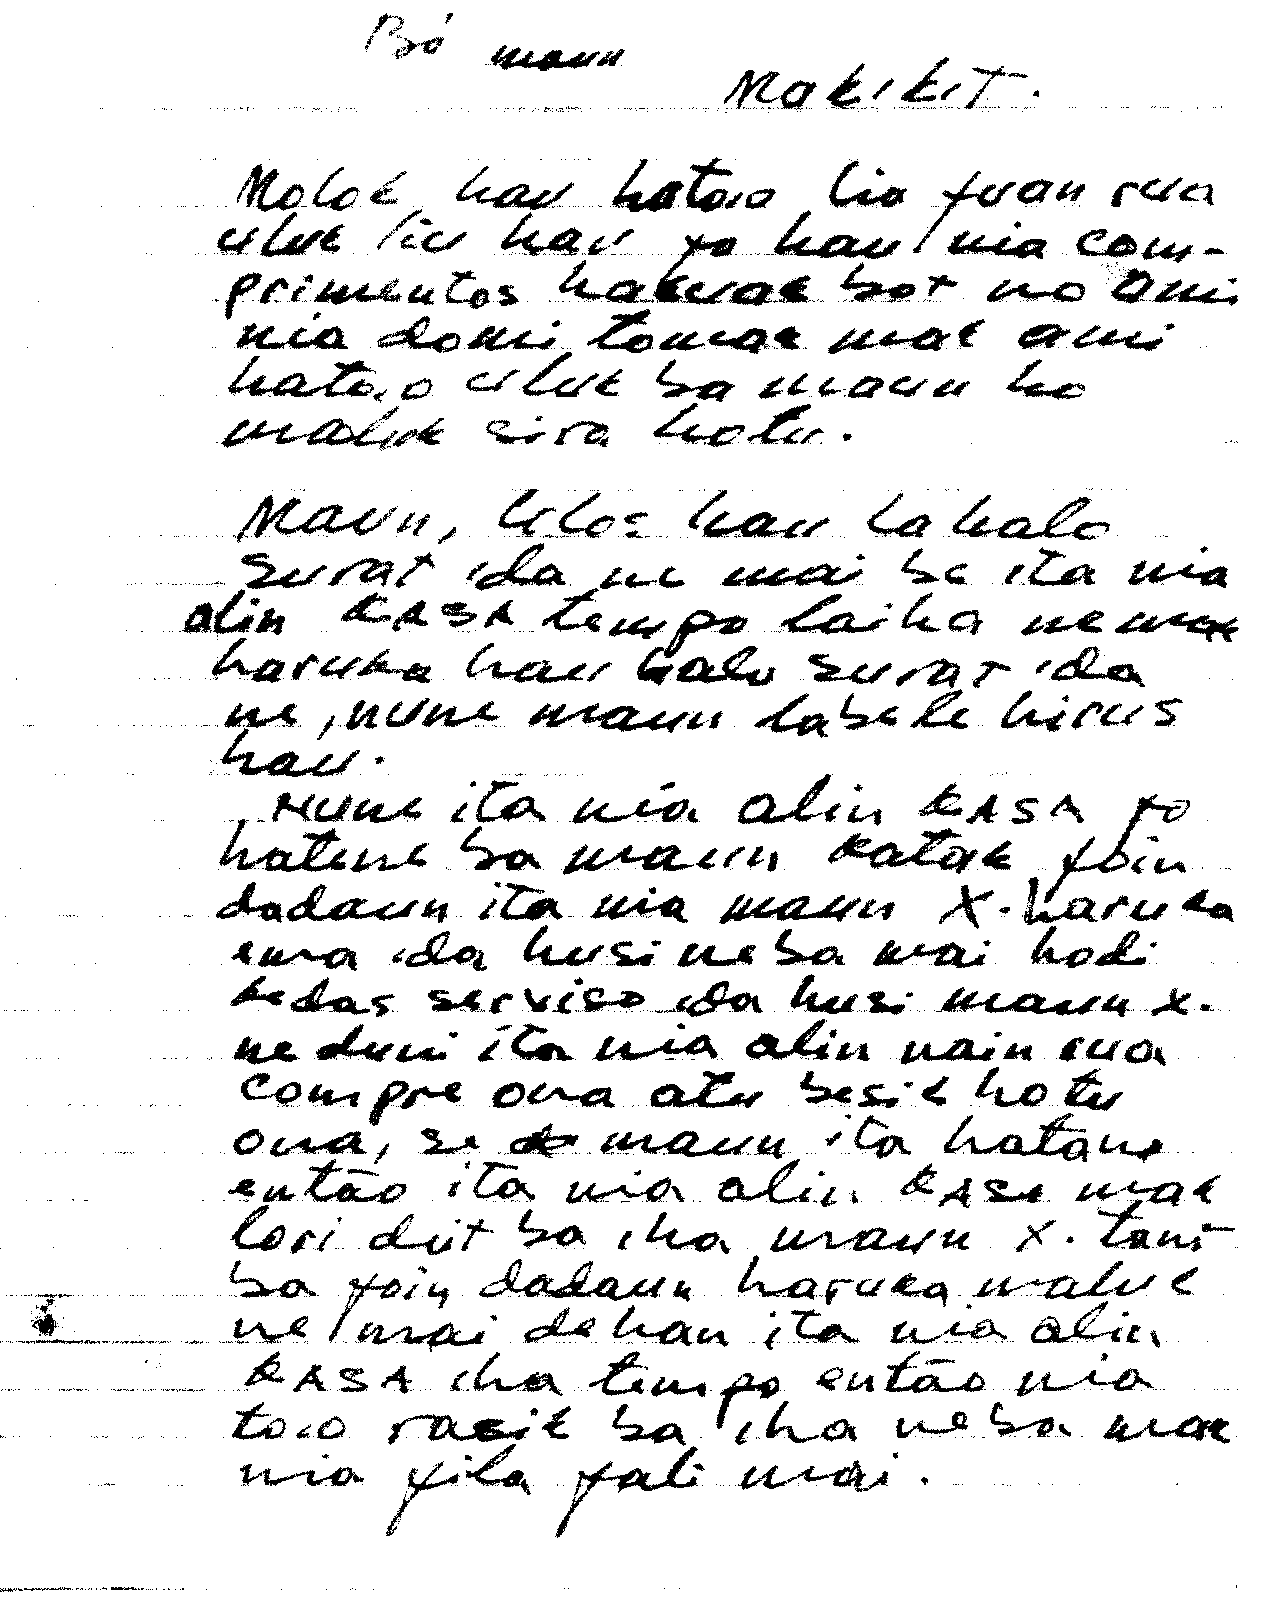 Bá maun
Makikit.
Molok hau hatoo lia fuan rua
uluk liu hau fo hau nia com-
primentos hakuak bot no ami
nia domi tomak mak ami
hatoo uluk ba maun ho
maluk sira hotu.
Maun, lolos hau la halo
surat ida ne mai be ita nia
alin KASA tempo laiha nemak
haruka hau halo surat ida
ne, nune maun labele hirus
hau.
Nune ita nia alin KASA fo
hatene ba maun katak foin
dadaun ita nia maun X. haruka
ema ida husi neba mai hodi
kedas serviso ida husi maun X.
ne duni ita nia alin nain rua
compre ona atu besik hotu
ona, se maun ita hatane
então ita nia alin KASA mak
lori diit ba iha maun X. tan
ba foin dadaun haruka maluk
ne mai dehan ita nia alin
KASA iha tempo então nia
too rasik ba iha neba mak
nia fila fali mai.